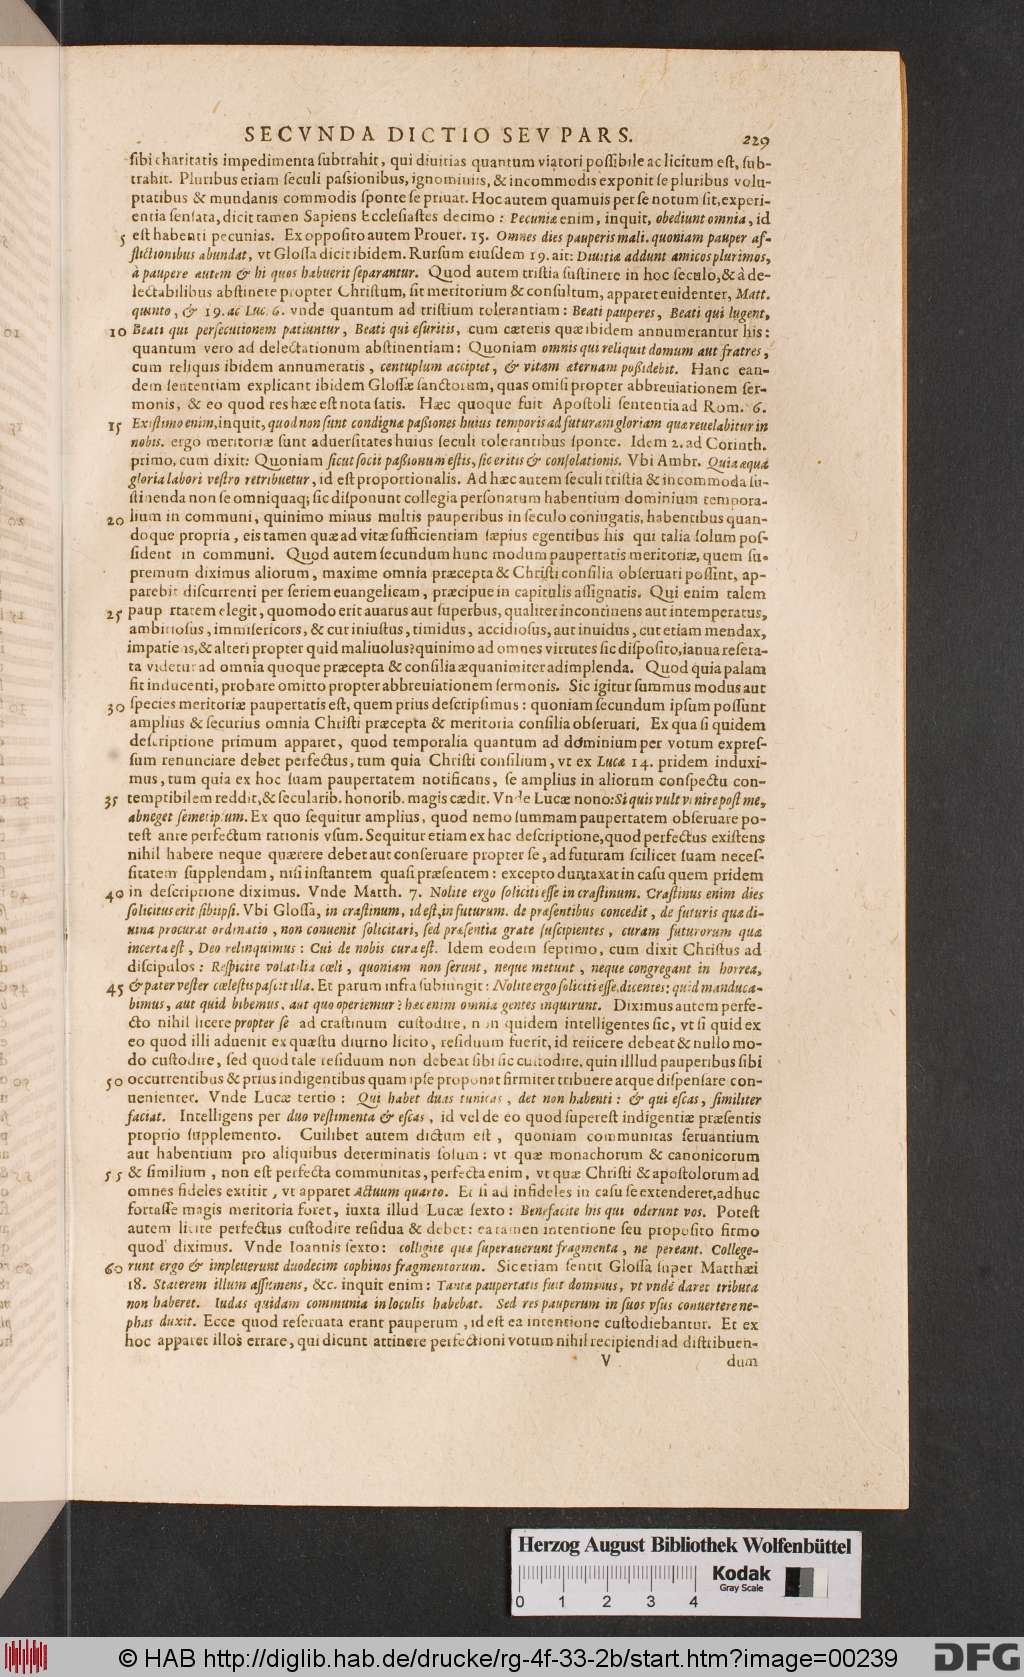 SECVNDA DICTIO SEV PARS. 229
sibi charitatis impedimenta subtrahit, qui diuitias quantum viatori possibile ac licitum est, sub-
trahit. Pluribus etiam seculi passionibus, ignominiis, & incommodis exponit se pluribus volu-
ptatibus & mundanis commodis sponte se priuat. Hoc autem quamuis per se notum sit, experi-
entia sensata, dicit tamen Sapiens Ecclesiastes decimo : Pecuniæ enim, inquit, obediunt omnia, id
5 est habenti pecunias. Ex opposito autem Prouer. 15. Omnes dies pauperis mali. quoniam pauper af-
flictionibus abundat, vt Glossa dicit ibidem. Rursum eiusdem 19. ait: Diuitiæ addunt amicos plurimos,
à paupere autem & hi quos habuerit separantur. Quod autem tristia sustinere in hoc seculo, & à de-
lectabilibus abstinere propter Christum, sit meritorium & consultum, apparet euidenter, Matt.
quinto, & 19. ac Luc. 6. vnde quantum ad tristium tolerantiam : Beati pauperes, Beati qui lugent,
10 Beati qui persecutionem patiuntur, Beati qui esuritis, cum cæteris quæ ibidem annumerantur his:
quantum vero ad delectationum abstinentiam: Quoniam omnis qui reliquit domum aut fratres,
cum reliquis ibidem annumeratis, centuplum accipiet, & vitam æternam possidebit. Hanc ean-
dem sententiam explicant ibidem Glossæ sanctorum, quas omisi propter abbreuiationem ser-
monis, & eo quod res hæc est nota satis. Hæc quoque fuit Apostoli sententia ad Rom. 6.
15 Existimo enim, inquit, quod non sunt condignæ passiones huius temporis ad futuram gloriam quæ reuelabitur in
nobis. ergo meritoriæ sunt aduersitates huius seculi tolerantibus sponte. Idem 2. ad Corinth.
primo, cum dixit: Quoniam sicut socii passionum estis, sic eritis & consolationis. Vbi Ambr. Quia æqua
gloria labori vestro retribuetur, id est proportionalis. Ad hæc autem seculi tristia & incommoda su-
stinenda non se omniquaq; sic disponunt collegia personarum habentium dominium tempora-
20 lium in communi, quinimo minus multis pauperibus in seculo coniugatis, habentibus quan-
doque propria, eis tamen quæ ad vitæ sufficientiam sæpius egentibus his qui talia solum pos-
sident in communi. Quod autem secundum hunc modum paupertatis meritoriæ, quem su-
premum diximus aliorum, maxime omnia præcepta & Christi consilia obseruari possint, ap-
parebit discurrenti per seriem euangelicam, præcipue in capitulis assignatis. Qui enim talem
25 paup rtatem elegit, quomodo erit auarus aut superbus, qualiter incontinens aut intemperatus,
ambitiosus, immisericors, & cur iniustus, timidus, accidiosus, aut inuidus, cur etiam mendax,
impatiens, & alteri propter quid maliuolus? quinimo ad omnes virtutes sic disposito, ianua resera-
ta videtur ad omnia quoque præcepta & consilia æquanimiter adimplenda. Quod quia palam
sit inducenti, probare omitto propter abbreuiationem sermonis. Sic igitur summus modus aut
30 species meritoriæ paupertatis est, quem prius descripsimus : quoniam secundum ipsum possunt
amplius & securius omnia Christi præcepta & meritoria consilia obseruari. Ex qua siquidem
descriptione primum apparet, quod temporalia quantum ad dominium per votum expres-
sum renunciare debet perfectus, tum quia Christi consilium, vt ex Lucæ 14. pridem induxi-
mus, tum quia ex hoc suam paupertatem notificans, se amplius in aliorum conspectu con-
35 temptibilem reddit, & secularib. honorib. magis cædit. Vnde Lucæ nono: Si quis vult venire post me,
abneget semetipsum. Ex quo sequitur amplius, quod nemo summam paupertatem obseruare po-
test ante perfectum rationis vsum. Sequitur etiam ex hac descriptione, quod perfectus existens
nihil habere neque quærere debet aut conseruare propter se, ad futuram scilicet suam neces-
sitatem supplendam, nisi instantem quasi præsentem : excepto duntaxat in casu quem pridem
40 in descriptione diximus. Vnde Matth. 7. Nolite ergo soliciti esse in crastinum. Crastinus enim dies
solicitus erit sibiipsi. Vbi Glossa, in crastinum, id est, in futurum. de præsentibus concedit, de futuris quæ di-
uina procurat ordinatio, non conuenit solicitari, sed præsentia grate suscipientes, curam futurorum quæ
incerta est, Deo relinquimus : Cui de nobis cura est. Idem eodem septimo, cum dixit Christus ad
discipulos : Respicite volatilia cœli, quoniam non serunt, neque metunt, neque congregant in horrea,
45 & pater vester cœlestis pascit illa. Et parum infra subiungit : Nolite ergo soliciti esse, dicentes: quid manduca-
bimus, aut quid bibemus, aut quo operiemur? hæc enim omnia gentes inquirunt. Diximus autem perfe-
cto nihil licere propter se ad crastinum custodire, non quidem intelligentes sic, vt si quid ex
eo quod illi aduenit ex quæstu diurno licito, residuum fuerit, id reiicere debeat & nullo mo-
do custodire, sed quod tale residuum non debeat sibi sic custodire, quin illlud pauperibus sibi
50 occurrentibus & prius indigentibus quam ipse proponat firmiter tribuere atque dispensare con-
uenienter. Vnde Lucæ tertio : Qui habet duas tunicas, det non habenti : & qui escas, similiter
faciat. Intelligens per duo vestimenta & escas, id vel de eo quod superest indigentiæ præsentis
proprio supplemento. Cuilibet autem dictum est, quoniam communitas seruantium
aut habentium pro aliquibus determinatis solum : vt quæ monachorum & canonicorum
55 & similium, non est perfecta communitas, perfecta enim, vt quæ Christi & apostolorum ad
omnes fideles extitit, vt apparet Actuum quarto. Et si ad infideles in casu se extenderet, adhuc
fortasse magis meritoria foret, iuxta illud Lucæ sexto : Benefacite his qui oderunt vos. Potest
autem licite perfectus custodire residua & debet: ea tamen intentione seu proposito firmo
quod diximus. Vnde Ioannis sexto : colligite quæ superauerunt fragmenta, ne pereant. College-
60 runt ergo & impleuerunt duodecim cophinos fragmentorum. Sic etiam sentit Glossa super Matthæi
18. Staterem illum assumens, &c. inquit enim : Tantæ paupertatis fuit dominus, vt vnde daret tributa
non haberet. Iudas quidam communia in loculis habebat. Sed res pauperum in suos vsus conuertere ne-
phas duxit. Ecce quod reseruata erant pauperum, id est ea intentione custodiebantur. Et ex
hoc apparet illos errare, qui dicunt attinere perfectioni votum nihil recipiendi ad distribuen-
V dum
Herzog August Bibliothek Wolfenbüttel
Kodak
Gray Scale
0 1 2 3 4
© HAB http://diglib.hab.de/drucke/rg-4f-33-2b/start.htm?image=00239
DFG